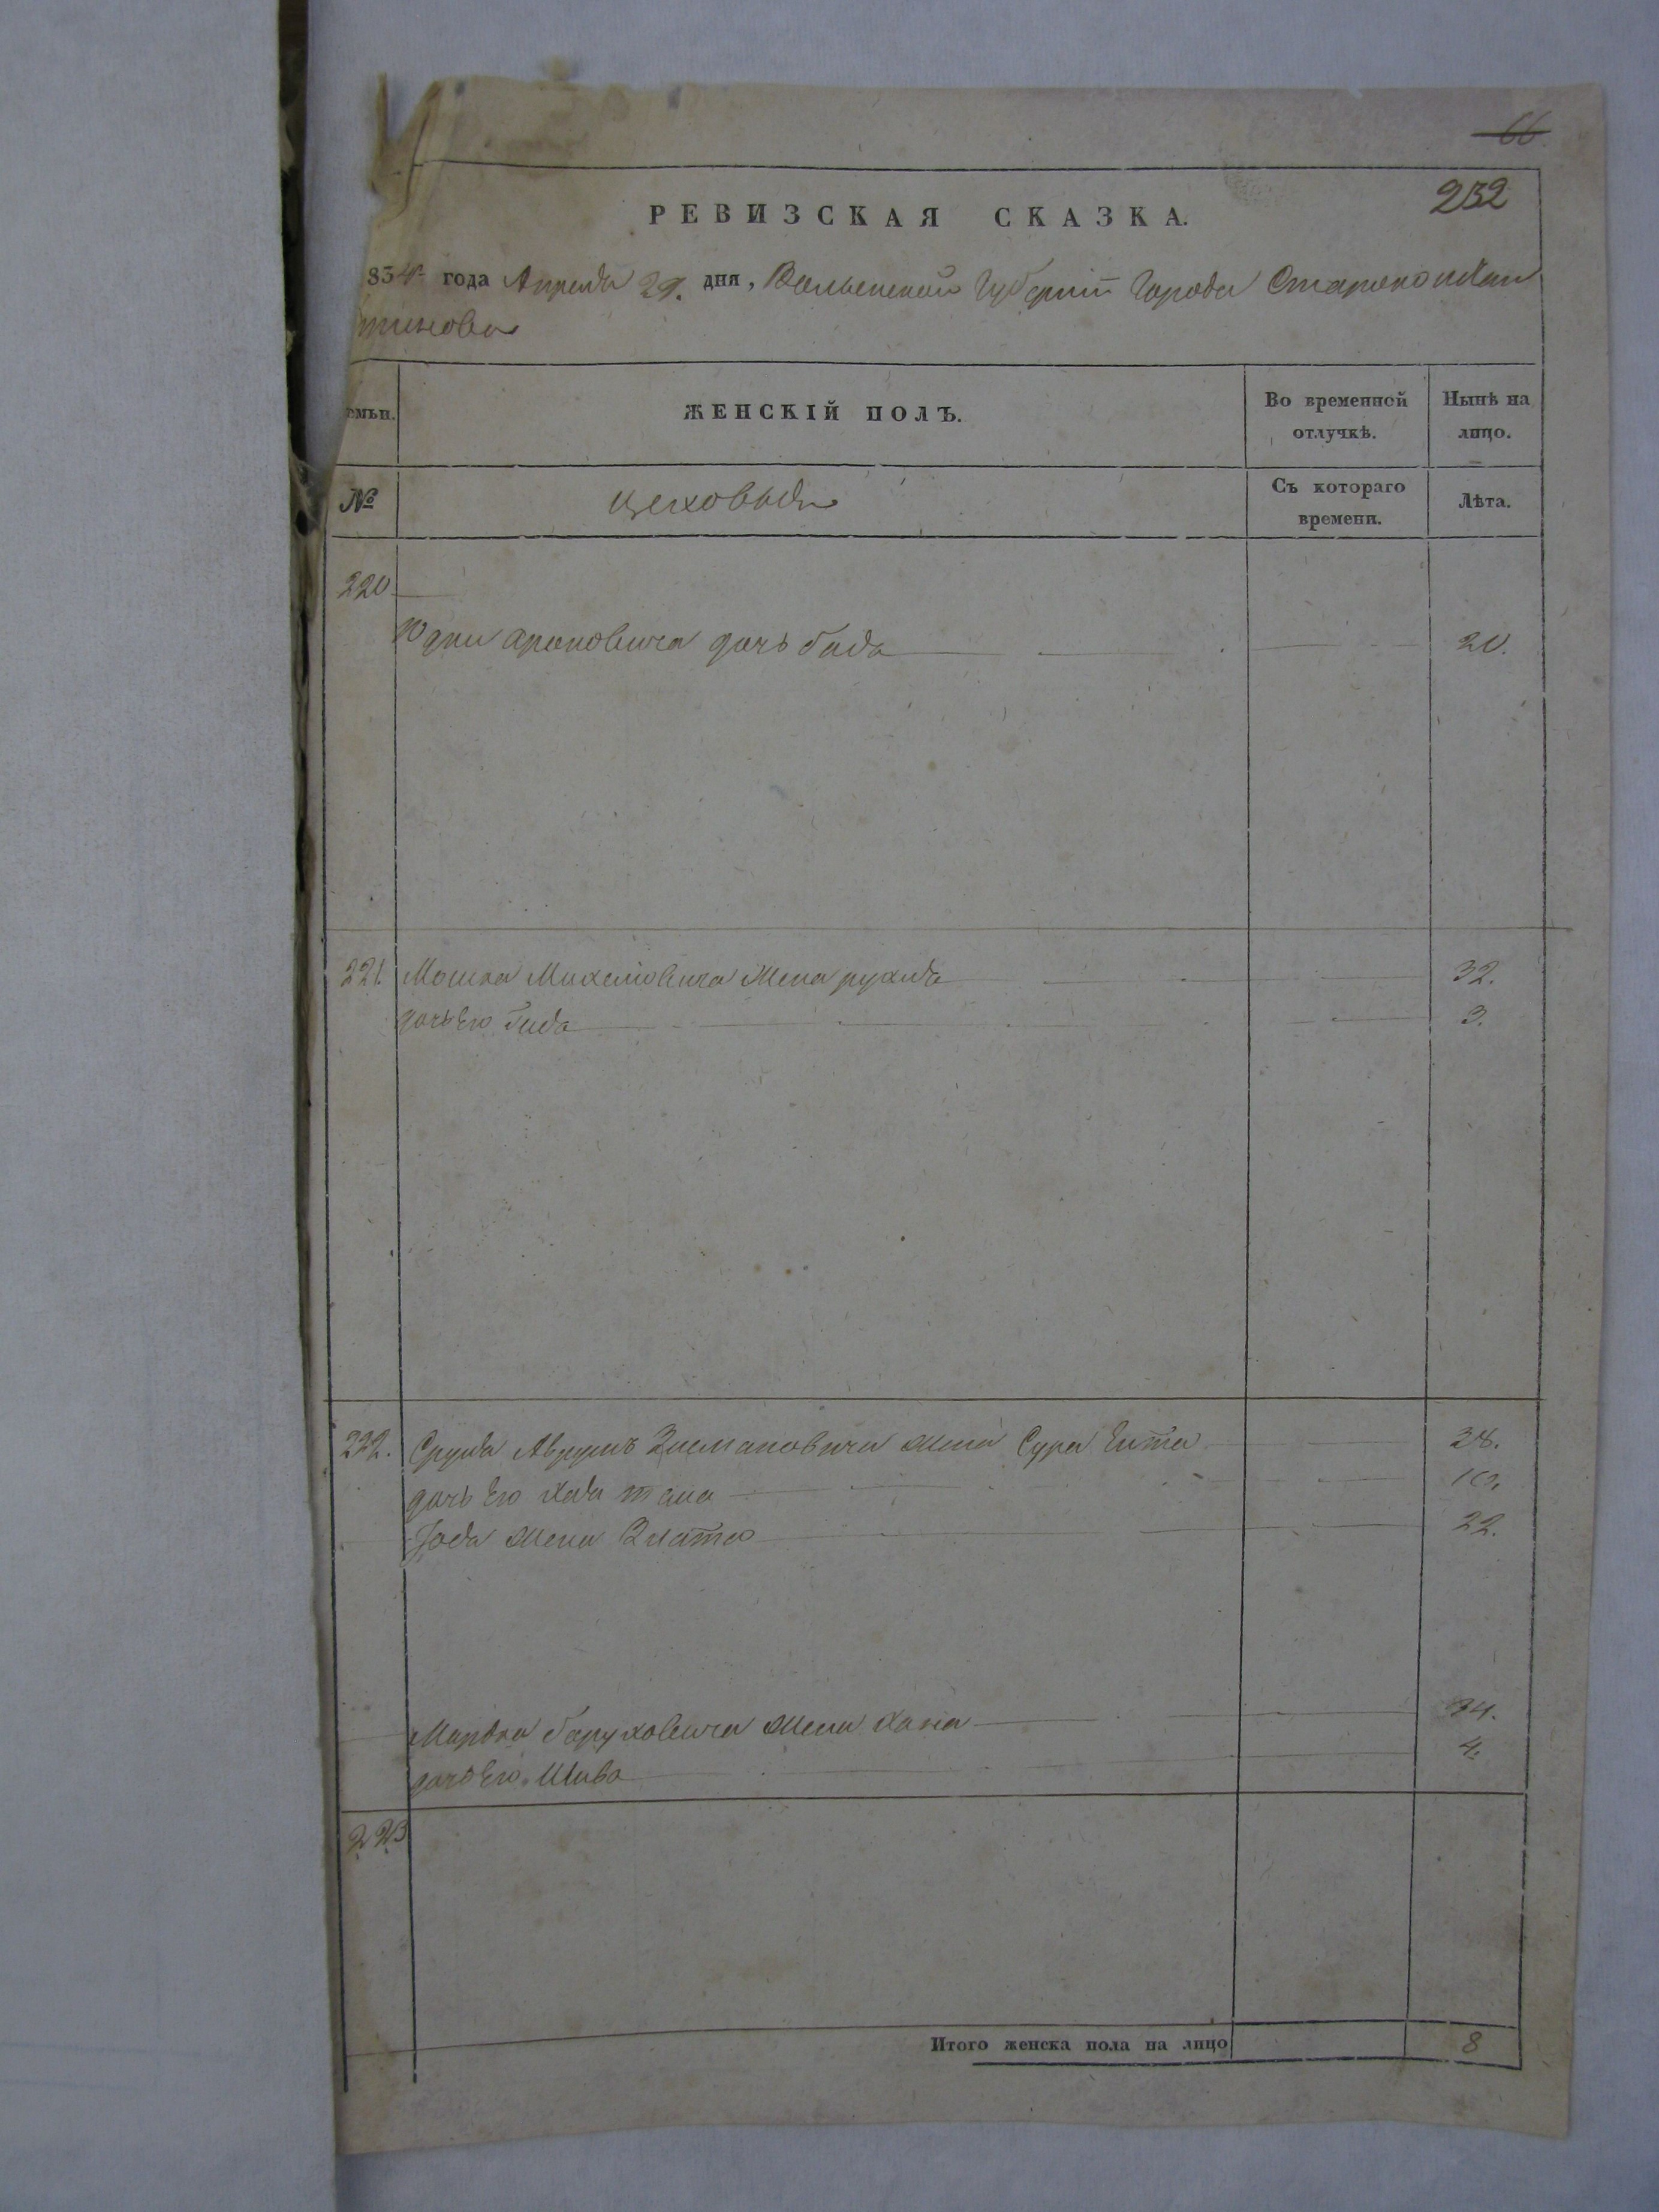 66
232
РЕВИЗСКАЯ СКАЗКА.
834 года Апреля 29. дня, Волынской Губернии Города Староконстан
тинова
емьи.
ЖЕНСКІЙ ПОЛЪ.
Во временной
отлучкѣ.
Нынѣ на
лицо.
№
Съ котораго
времени.
Лѣта.
220
дочь 20.
221. Мошка Михелиовича Жена рухля 32.
дочь Его 3.
222. Сруля Аврумъ Зисмановича жена Сура Ента 38.
дочь Его 10.
жена Злата 22.
Мордка боруховича жена хана 34.
дочь Его Шива 4.
223
Итого женска пола на лицо 8